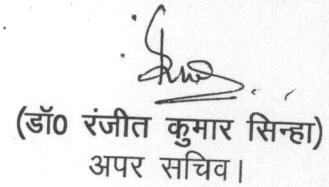 (डॉ0 रंजीत कुमार सिन्हा)
अपर सचिव।